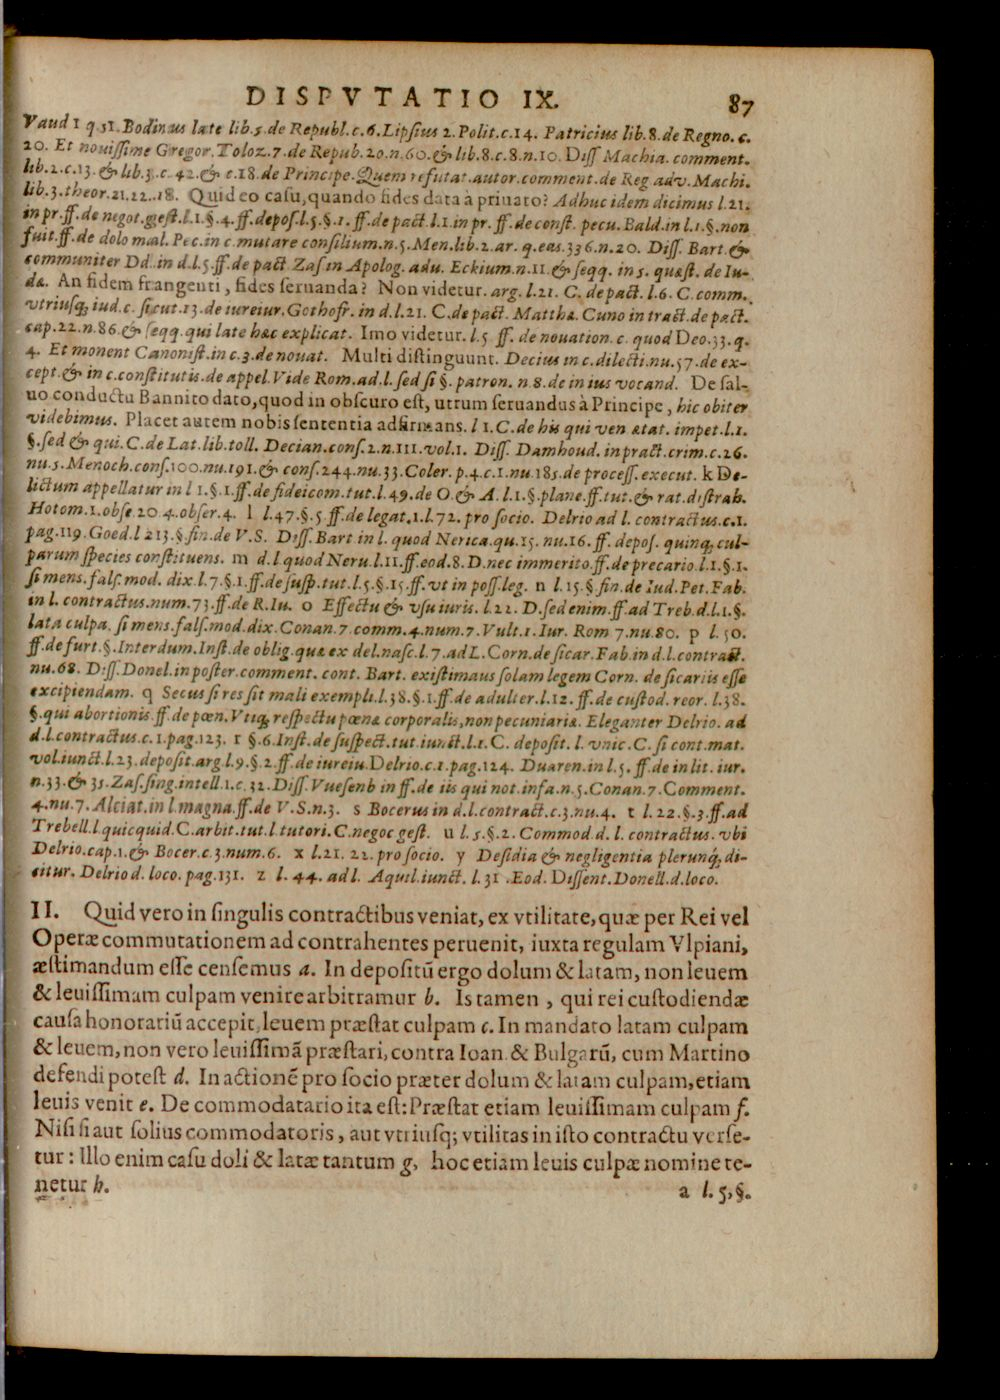 DISPVTATIO IX. 87
Vaud 1 q 51. Bodinus late lib. 5. de Republ. c. 6. Lipsius 2. Polit. c. 14. Patricius lib. 8. de Regno. c.
20. Et nouissime Gregor. Toloz. 7. de Repub. 20. n. 60. & lib. 8. c. 8. n. 10. Diss Machia. comment.
lib. 2. c. 13. & lib. 3. c. 42. & c. 18. de Principe. Quem refutat. autor. comment. de Reg adv. Machi.
lib. 3. theor. 21. 22. 18. Quid eo casu, quando fides data à priuato? Adhuc idem dicimus l. 21.
in pr. ff. de negot. gest. l. 1. §. 4. ff. depos. l. 5. §. 1. ff. de pact l. 1. in pr. ff. de const. pecu. Bald. in l. 1. §. non
fuit. ff. de dolo mal. Pec. in c. mutare consilium. n. 5. Men. lib. 2. ar. q. eas. 336. n. 20. Diss. Bart. &
communiter Dd. in d. l. 5. ff. de pact Zas. in Apolog. adu. Eckium. n. 11. & seqq. in 5. quæst. de Iu-
dæ. An fidem frangenti, fides seruanda? Non videtur. arg. l. 21. C. de pact. l. 6. C. comm.
vtriusq; iud. c. sicut. 13. de iureiur. Gothofr. in d. l. 21. C. de pact. Matthæ. Cuno in tract. de pact.
cap. 22. n. 86. & seqq. qui late hæc explicat. Imo videtur. l. 5 ff. de nouation. c. quod Deo. 33. q.
4. Et monent Canonist. in c. 3. de nouat. Multi distinguunt. Decius in c. dilecti. nu. 57. de ex-
cept. & in c. constitutis. de appel. Vide Rom. ad. l. sed si §. patron. n. 8. de in ius vocand. De sal-
uo conductu Bannito dato, quod in obscuro est, utrum seruandus à Principe, hic obiter
videbimus. Placet autem nobis sententia adfirmans. l 1. C. de his qui ven ætat. impet. l. 1.
§. sed & qui. C. de Lat. lib. toll. Decian. cons. 2. n. 111. vol. 1. Diss. Damhoud. in pract. crim. c. 26.
nu. 5. Menoch. cons. 100. nu. 191. & cons. 244. nu. 33. Coler. p. 4. c. 1. nu. 185. de process. execut. k De-
lictum appellatur in l 1. §. 1. ff. de fideicom. tut. l. 49. de O. & A. l. 1. §. plane. ff. tut. & rat. distrah.
Hotom. 1. obse. 20 4. obser. 4. l l. 47. §. 5 ff. de legat. 1. l. 72. pro socio. Delrio ad l. contractus. c. 1.
pag. 119. Goed. l 213. §. fin. de V. S. Diss. Bart in l. quod Nerua. qu. 15. nu. 16. ff. depos. quinq; cul-
parum species constituens. m d. l quod Neru. l. 11. ff. eod. 8. D. nec immerito. ff. de precario. l. 1. §. 1.
si mens. fals. mod. dix. l. 7. §. 1. ff. de susp. tut. l. 5. §. 15. ff. vt in poss. leg. n l. 15. §. fin. de Iud. Pet. Fab.
in l. contractus. num. 73. ff. de R. Iu. o Effectu & vsu iuris. l. 22. D. sed enim. ff. ad Treb. d. l. 1. §.
lata culpa. si mens. fals. mod. dix. Conan. 7 comm. 4. num. 7. Vult. 1. Iur. Rom 7. nu. 80. p l. 50.
ff. de furt. §. Interdum. Inst. de oblig. quæ ex del. nasc. l. 7. ad L. Corn. de sicar. Fab. in d. l. contract.
nu. 68. Diss. Donel. in poster. comment. cont. Bart. existimans solam legem Corn. de sicariis esse
excipiendam. q Secus si res sit mali exempli. l. 38. §. 1. ff. de adulter. l. 12. ff. de custod. reor. l. 38.
§. qui abortionis. ff. de pœn. Vtiq; respectu pœnæ corporalis, non pecuniariæ. Eleganter Delrio. ad
d. l. contractus. c. 1. pag. 123. r §. 6. Inst. de suspect. tut. iunct. l. 1. C. deposit. l. vnic. C. si cont. mat.
vol. iunct. l. 23. deposit. arg. l. 9. §. 2. ff. de iureiu. Delrio. c. 1. pag. 124. Duaren. in l. 5. ff. de in lit. iur.
n. 33. & 35. Zas. sing. intell. 1. c. 32. Diss. Vuesenb in ff. de iis qui not. infa. n. 5. Conan. 7. Comment.
4. nu. 7. Alciat. in l. magna. ff. de V. S. n. 3. s Bocerus in d. l. contract. c. 3. nu. 4. t l. 22. §. 3. ff. ad
Trebell. l. quicquid. C. arbit. tut. l. tutori. C. negoc gest. u l. 5. §. 2. Commod. d. l. contractus. vbi
Delrio. cap. 1. & Bocer. c. 3. num. 6. x l. 21. 22. pro socio. y Desidia & negligentia plerunq; di-
citur. Delrio d. loco. pag. 131. z l. 44. ad l. Aquil. iunct. l. 31. Eod. Dissent. Donell. d. loco.
II. Quid vero in singulis contractibus veniat, ex vtilitate, quæ per Rei vel
Operæ commutationem ad contrahentes peruenit, iuxta regulam Vlpiani,
æstimandum esse censemus a. In depositũ ergo dolum & latam, non leuem
& leuissimam culpam venire arbitramur b. Is tamen, qui rei custodiendæ
causa honorariũ accepit, leuem præstat culpam c. In mandato latam culpam
& leuem, non vero leuissimã præstari, contra Ioan. & Bulgarũ, cum Martino
defendi potest d. In actionẽ pro socio præter dolum & latam culpam, etiam
leuis venit e. De commodatario ita est: Præstat etiam leuissimam culpam f.
Nisi si aut solius commodatoris, aut vtriusq; vtilitas in isto contractu verse-
tur: Illo enim casu doli & latæ tantum g, hoc etiam leuis culpæ nomine te-
netur h.
a l. 5, §.